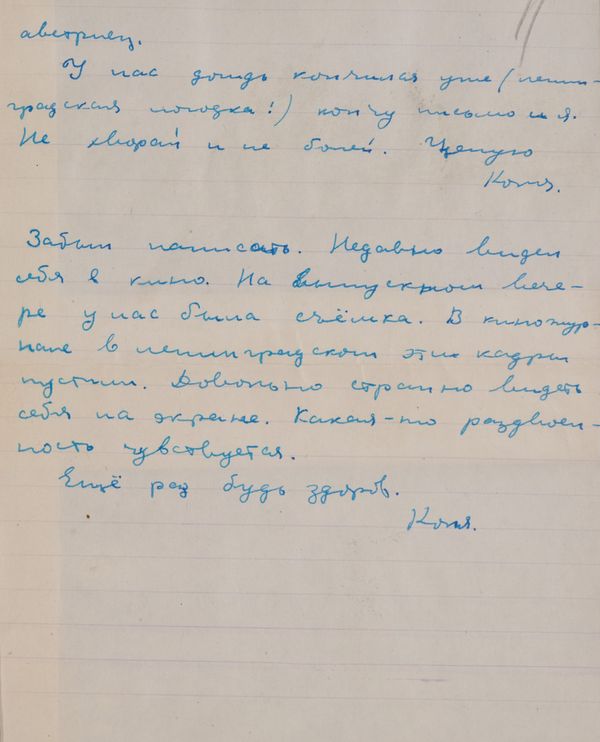 австриец.
У нас дождь кончился уже (ленин-
градская погодка!) кончу письмо и я.
Не хворай и не болей. Целую
Коля.
Забыл написать. Недавно видел
себя в кино. На выпускном вече-
ре у нас была съёмка. В киножур-
нале в ленинградском эти кадры
пустили. Довольно странно видеть
себя на экране. Какая-то раздвоен-
ность чувствуется.
Ещё раз будь здоров.
Коля.